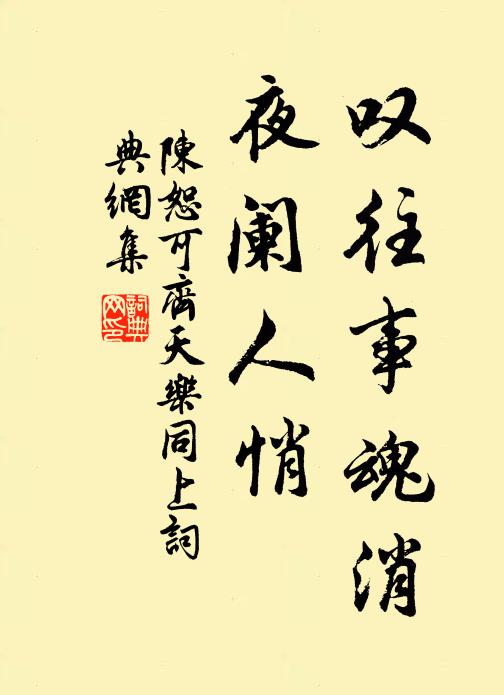 叹往事魂消
夜阑人悄
陳恕可齊天樂同上詞
典網集
詞典
网印